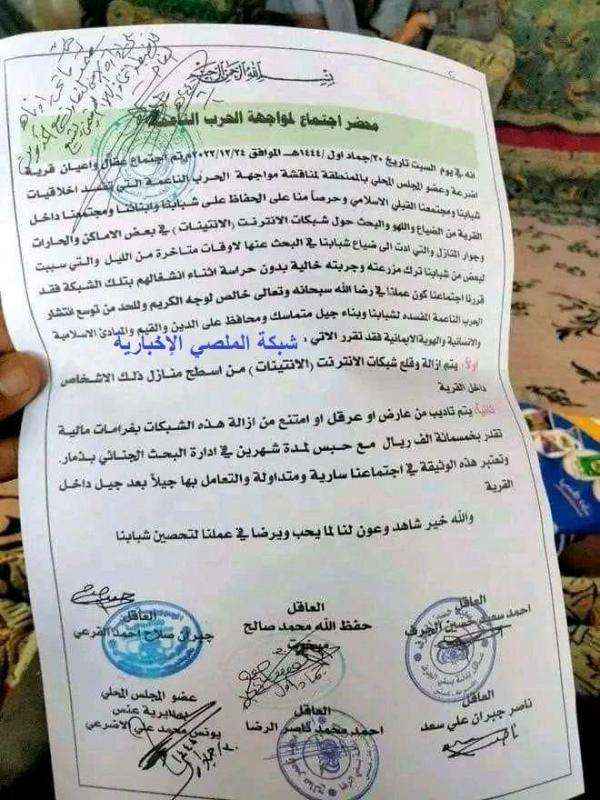 بسم الله الرحمن الرحيم
محضر اجتماع لمواجهة الحرب الناعمة
انه في يوم السبت تاريخ ٣٠/جماد اول /١٤٤٤هـ الموافق ٢٠٢٢/١٢/٢٤م تم اجتماع عقال واعيان قرية
اضرعة وعضو المجلس المحلي بالمنطقة لمناقشة مواجهة الحرب الناعمة التي تفسد اخلاقيات
شبابنا ومجتمعنا القبلي الاسلامي وحرصاً منا على الحفاظ على شبابنا وابنائنا ومجتمعنا داخل
القرية من الضياع واللهو والبحث حول شبكات الانترنت (الانتينات) في بعض الاماكن والحارات
وجوار المنازل والتي ادت الى ضياع شبابنا في البحث عنها لاوقات متاخرة من الليل والتي سببت
لبعض من شبابنا ترك مزرعته وجربته خالية بدون حراسة اثناء انشغالهم بتلك الشبكة فقد
قررنا اجتماعنا كون عملنا في رضا الله سبحانه وتعالى خالص لوجه الكريم وللحد من توسع انتشار
الحرب الناعمة المفسد لشبابنا وبناء جيل متماسك ومحافظ على الدين والقيم والمبادئ الاسلامية
والانسانية والهوية الايمانية فقد تقرر الاتي :
شبكة الملصي الإخبارية
اولاً: يتم ازالة وقلع شبكات الانترنت (الانتينات) من اسطح منازل ذلك الاشخاص
داخل القرية
ثانياً: يتم تاديب من عارض او عرقل او امتنع من ازالة هذه الشبكات بغرامات مالية
تقدر بخمسمائة الف ريال مع حبس لمدة شهرين في ادارة البحث الجنائي بذمار.
وتعتبر هذه الوثيقة في اجتماعنا سارية ومتداولة والتعامل بها جيلاً بعد جيل داخل
القرية
والله خير شاهد وعون لنا لما يحب ويرضا في عملنا لتحصين شبابنا
العاقل
احمد سعد حسين الجرف
العاقل
حفظ الله محمد صالح
العاقل
جبران صلاح احمد القرعي
العاقل
ناصر جبران علي سعد
العاقل
احمد محمد ناصر الرضا
عضو المجلس المحلي
بمديرية عنس
يونس محمد علي الاضرعي